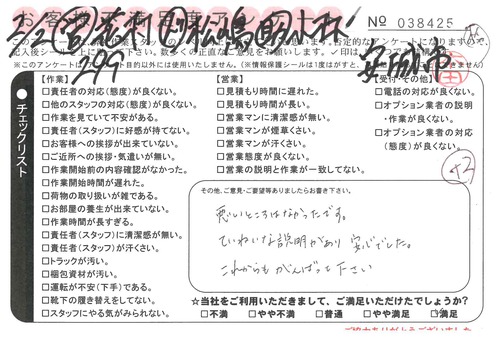 No 038425
※このアンケートはアンケート目的以外には使用いたしません。(※情報保護シールは1度はがすと、
【作業】
□責任者の対応(態度)が良くない。
□他のスタッフの対応(態度)が良くない。
□作業を見ていて不安がある。
□責任者(スタッフ)に好感が持てない。
□お客様への挨拶が出来ていない。
□ご近所への挨拶・気遣いが無い。
□作業開始前の内容確認がなかった。
□作業開始時間が遅れた。
□荷物の取り扱いが雑である。
□お部屋の養生が出来ていない。
□作業時間が長すぎる。
□責任者(スタッフ)に清潔感が無い。
□責任者(スタッフ)が汗くさい。
□トラックが汚い。
□梱包資材が汚い。
□運転が不安(下手)である。
□靴下の履き替えをしてない。
□スタッフにやる気がみられない。
チェックリスト
【営業】
□見積もり時間に遅れた。
□見積もり時間が長い。
□営業マンに清潔感が無い。
□営業マンが煙草くさい。
□営業マンが汗くさい。
□営業態度が良くない。
□営業の説明と作業が一致してない。
【受付・その他】
□電話の対応が良くない。
□オプション業者の説明
・作業が良くない。
□オプション業者の対応
(態度)が良くない。
その他、ご意見・ご要望等ありましたらお書き下さい。
悪いところはなかったです。
ていねいな説明があり 安心でした。
これからもがんばって下さい
☆当社をご利用いただきまして、ご満足いただけたでしょうか?
□不満 □やや不満 □普通 □やや満足 ☑満足
ご協力ありがとうございました